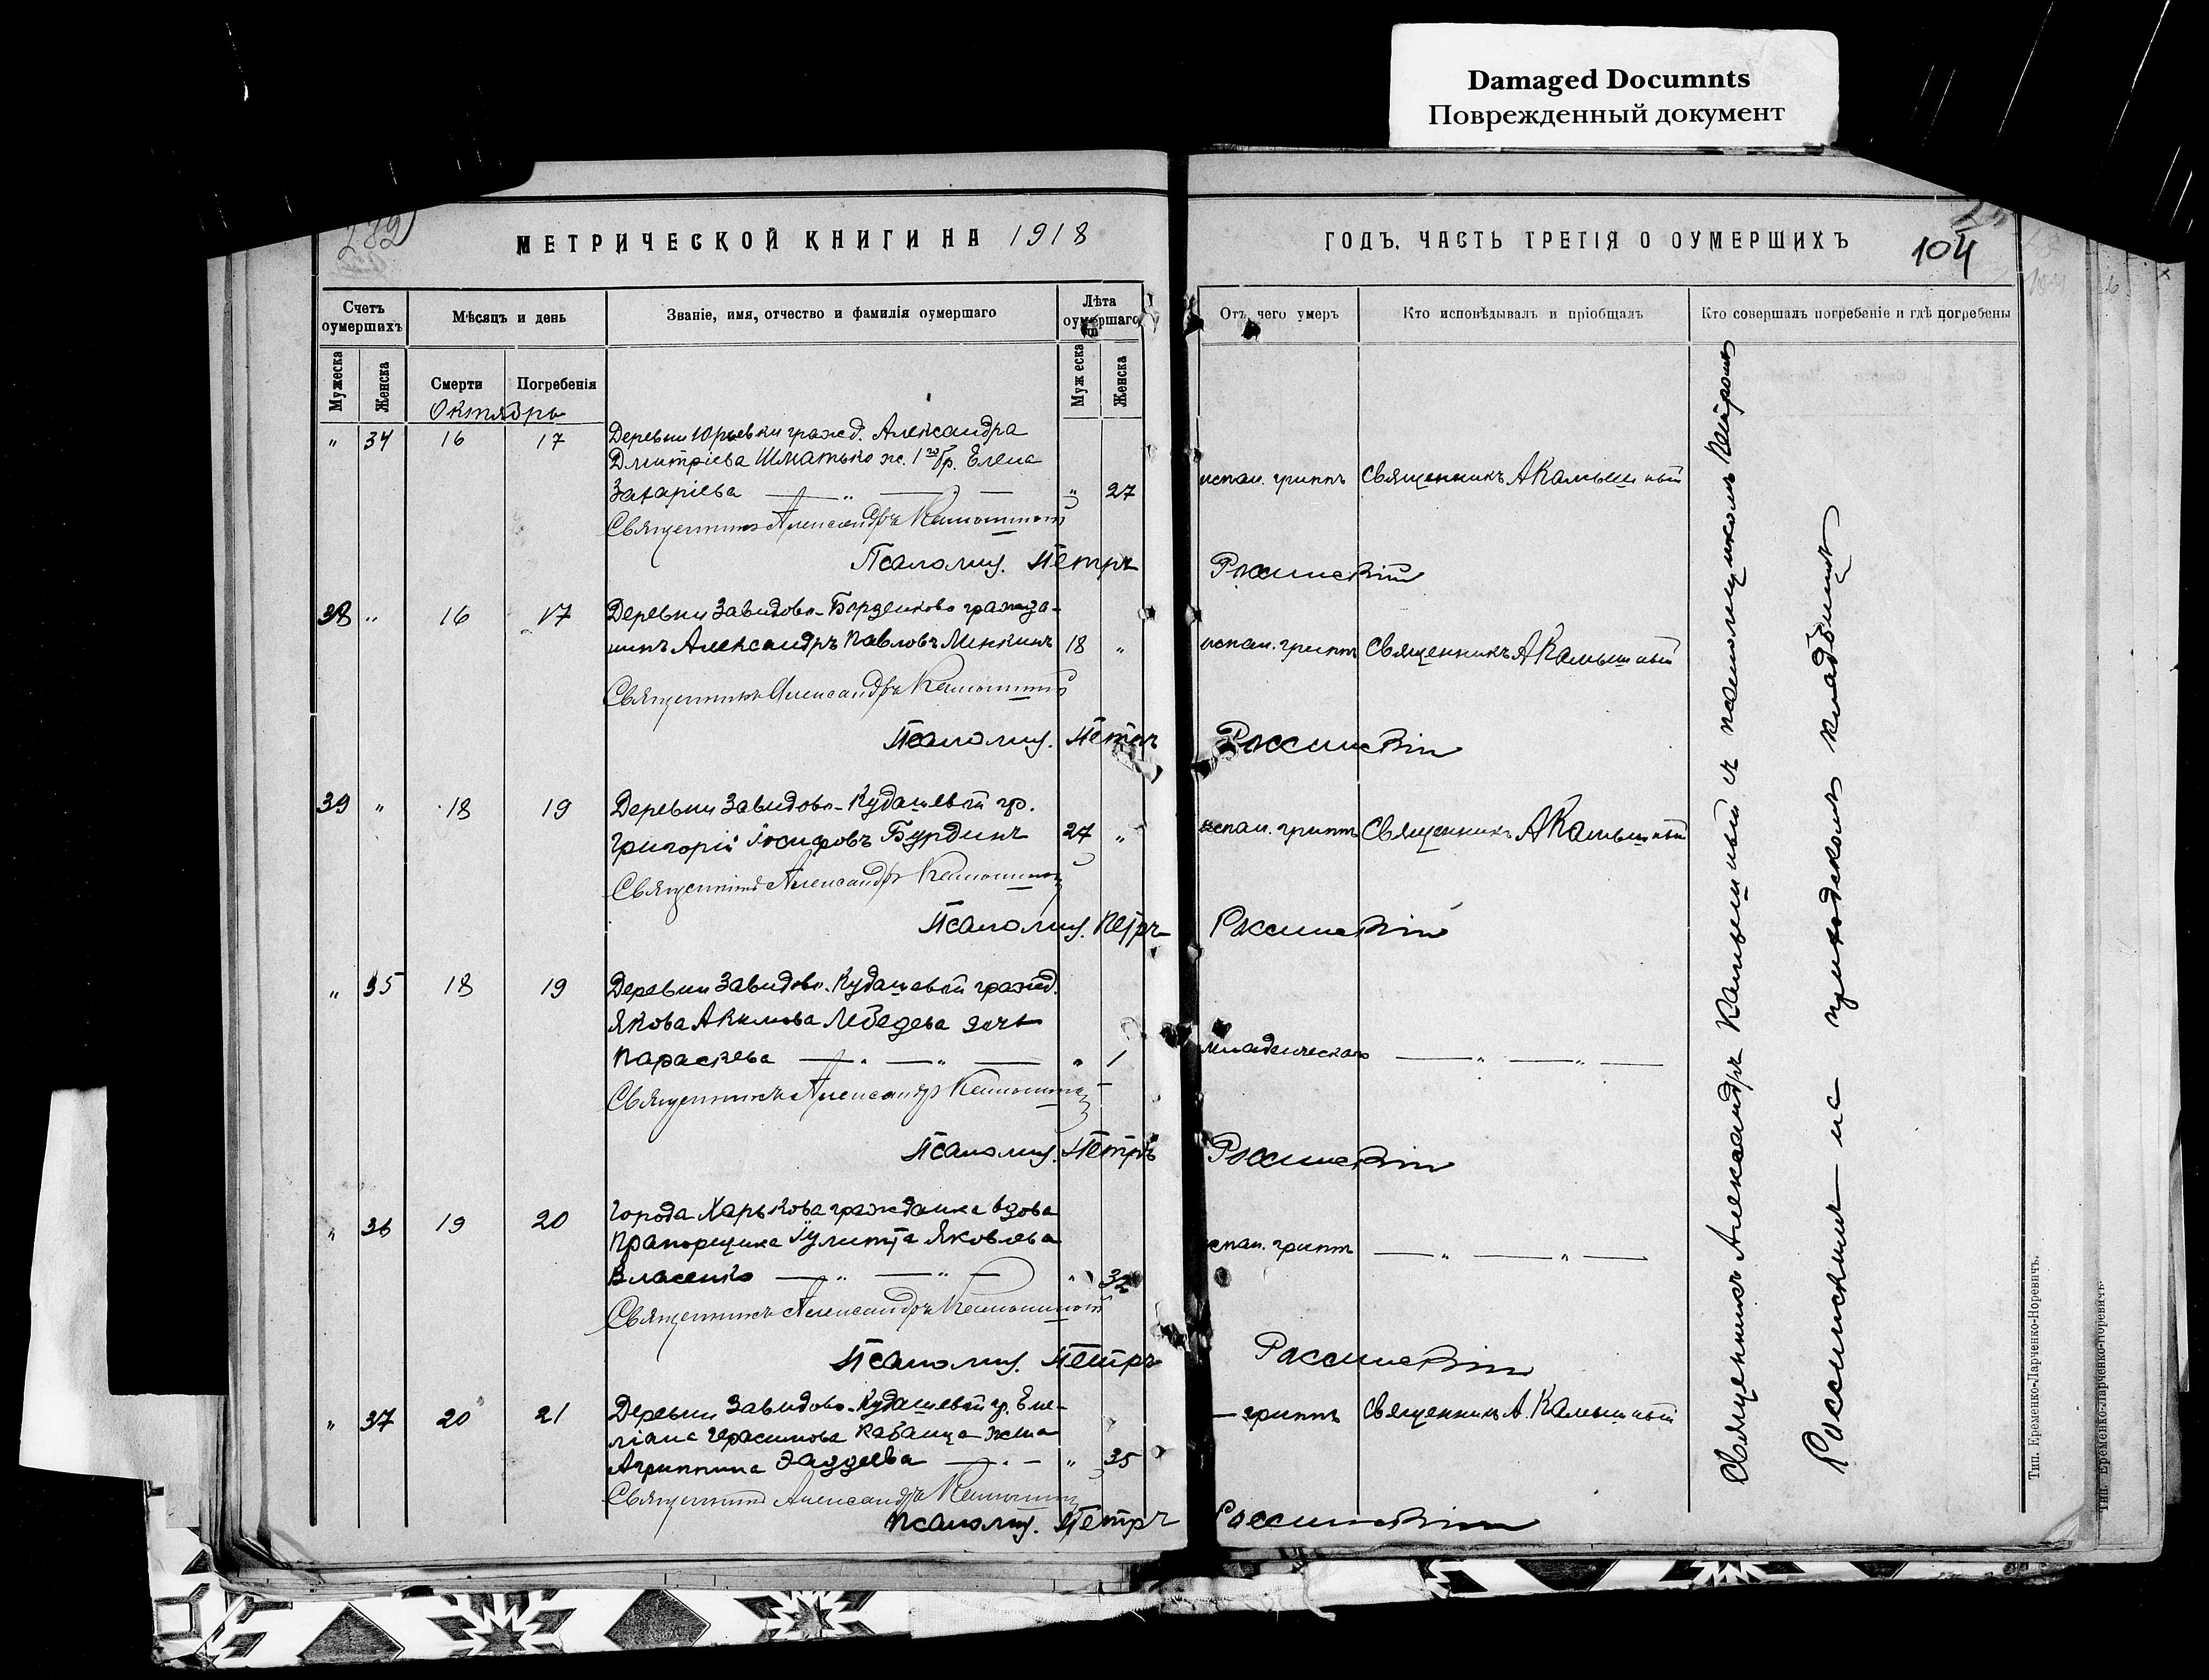 Damaged Documnts
Поврежденный документ
МЕТРИЧЕСКОЙ КНИГИ НА 1918
ГОДЪ, ЧАСТЬ ТРЕТІЯ О ОУМЕРШИХЪ
104
Счетъ оумершихъ
Мѣсяцъ и день
Званіе, имя, отчество и фамилія оумершаго
Лѣта оумершаго
Отъ чего умеръ
Кто исповѣдывалъ и пріобщалъ
Кто совершалъ погребеніе и гдѣ погребены
Мужеска
Женска
Смерти
Погребенія
Мужеска
Женска
Октябрь
" 34 16 17 Деревни Юрьевки гражд. Александра
Дмитріева Шматько ж. 1го бр. Елена
Захаріева " 27 испан. гриппъ Священникъ А Камышный
Священникъ Александръ Камышный
Псаломщ. Петръ Россинскій
38 " 16 17 Деревни Завидово-Борзенково гражда-
нинъ Александръ Павловъ Минкинъ 18 " испан. гриппъ Священникъ А Камышный
Священникъ Александръ Камышный
Псаломщ. Петръ Россинскій
39 " 18 19 Деревни Завидово-Кудашевой гр.
Григорій Іосифовъ Бурдинъ 27 " испан. гриппъ Священникъ А Камышный
Священникъ Александръ Камышный
Псаломщ. Петръ Россинскій
" 35 18 19 Деревни Завидово-Кудашевой гражд.
Якова Акимова Лебедева дочь
Параскева " 1 младенческаго
Священникъ Александръ Камышный
Псаломщ. Петръ Россинскій
" 36 19 20 Города Харькова гражданка вдова
прапорщика Іулитта Яковлева
Власенко " 32 испан. гриппъ
Священникъ Александръ Камышный
Псаломщ. Петръ Россинскій
" 37 20 21 Деревни Завидово-Кудашевой гр. Еме-
ліана Герасимова Кабанца жена
Агриппина Фаддеева " 35 гриппъ Священникъ А. Камышный
Священникъ Александръ Камышный
Псаломщ. Петръ Россинскій
Священникъ Александръ Камышный съ псаломщикомъ Петромъ
Россинскимъ на приходскомъ кладбищѣ
Тип. Еременко-Ларченко-Норевичъ.
Тип. Еременко-Ларченко-Норевичъ.